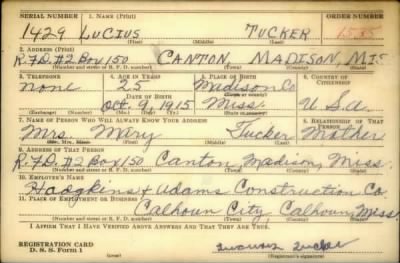 SERIAL NUMBER 1. NAME (Print) ORDER NUMBER
1429 LUCIUS TUCKER
(First) (Middle) (Last)
2. ADDRESS (Print)
R.F.D. #2 Box 150 CANTON MADISON, MIS
(Number and street or R. F. D. number) (Town) (County) (State)
3. TELEPHONE 4. AGE IN YEARS 5. PLACE OF BIRTH 6. COUNTRY OF CITIZENSHIP
none 25 Madison Co
DATE OF BIRTH (Town or county)
Oct. 9, 1915 Miss. U.S.A.
(Exchange) (Number) (Mo.) (Day) (Yr.) (State or country)
7. NAME OF PERSON WHO WILL ALWAYS KNOW YOUR ADDRESS 8. RELATIONSHIP OF THAT PERSON
Mrs. Mary Tucker Mother
(Mr., Mrs., Miss) (First) (Middle) (Last)
9. ADDRESS OF THAT PERSON
R.F.D. #2 Box 150 Canton, Madison, Miss.
(Number and street or R. F. D. number) (Town) (County) (State)
10. EMPLOYER'S NAME
Hodgkins & Adams Construction Co.
11. PLACE OF EMPLOYMENT OR BUSINESS
Calhoun City, Calhoun, Miss.
(Number and street or R. F. D. number) (Town) (County) (State)
I AFFIRM THAT I HAVE VERIFIED ABOVE ANSWERS AND THAT THEY ARE TRUE.
REGISTRATION CARD
D. S. S. Form 1 (Registrant's signature)